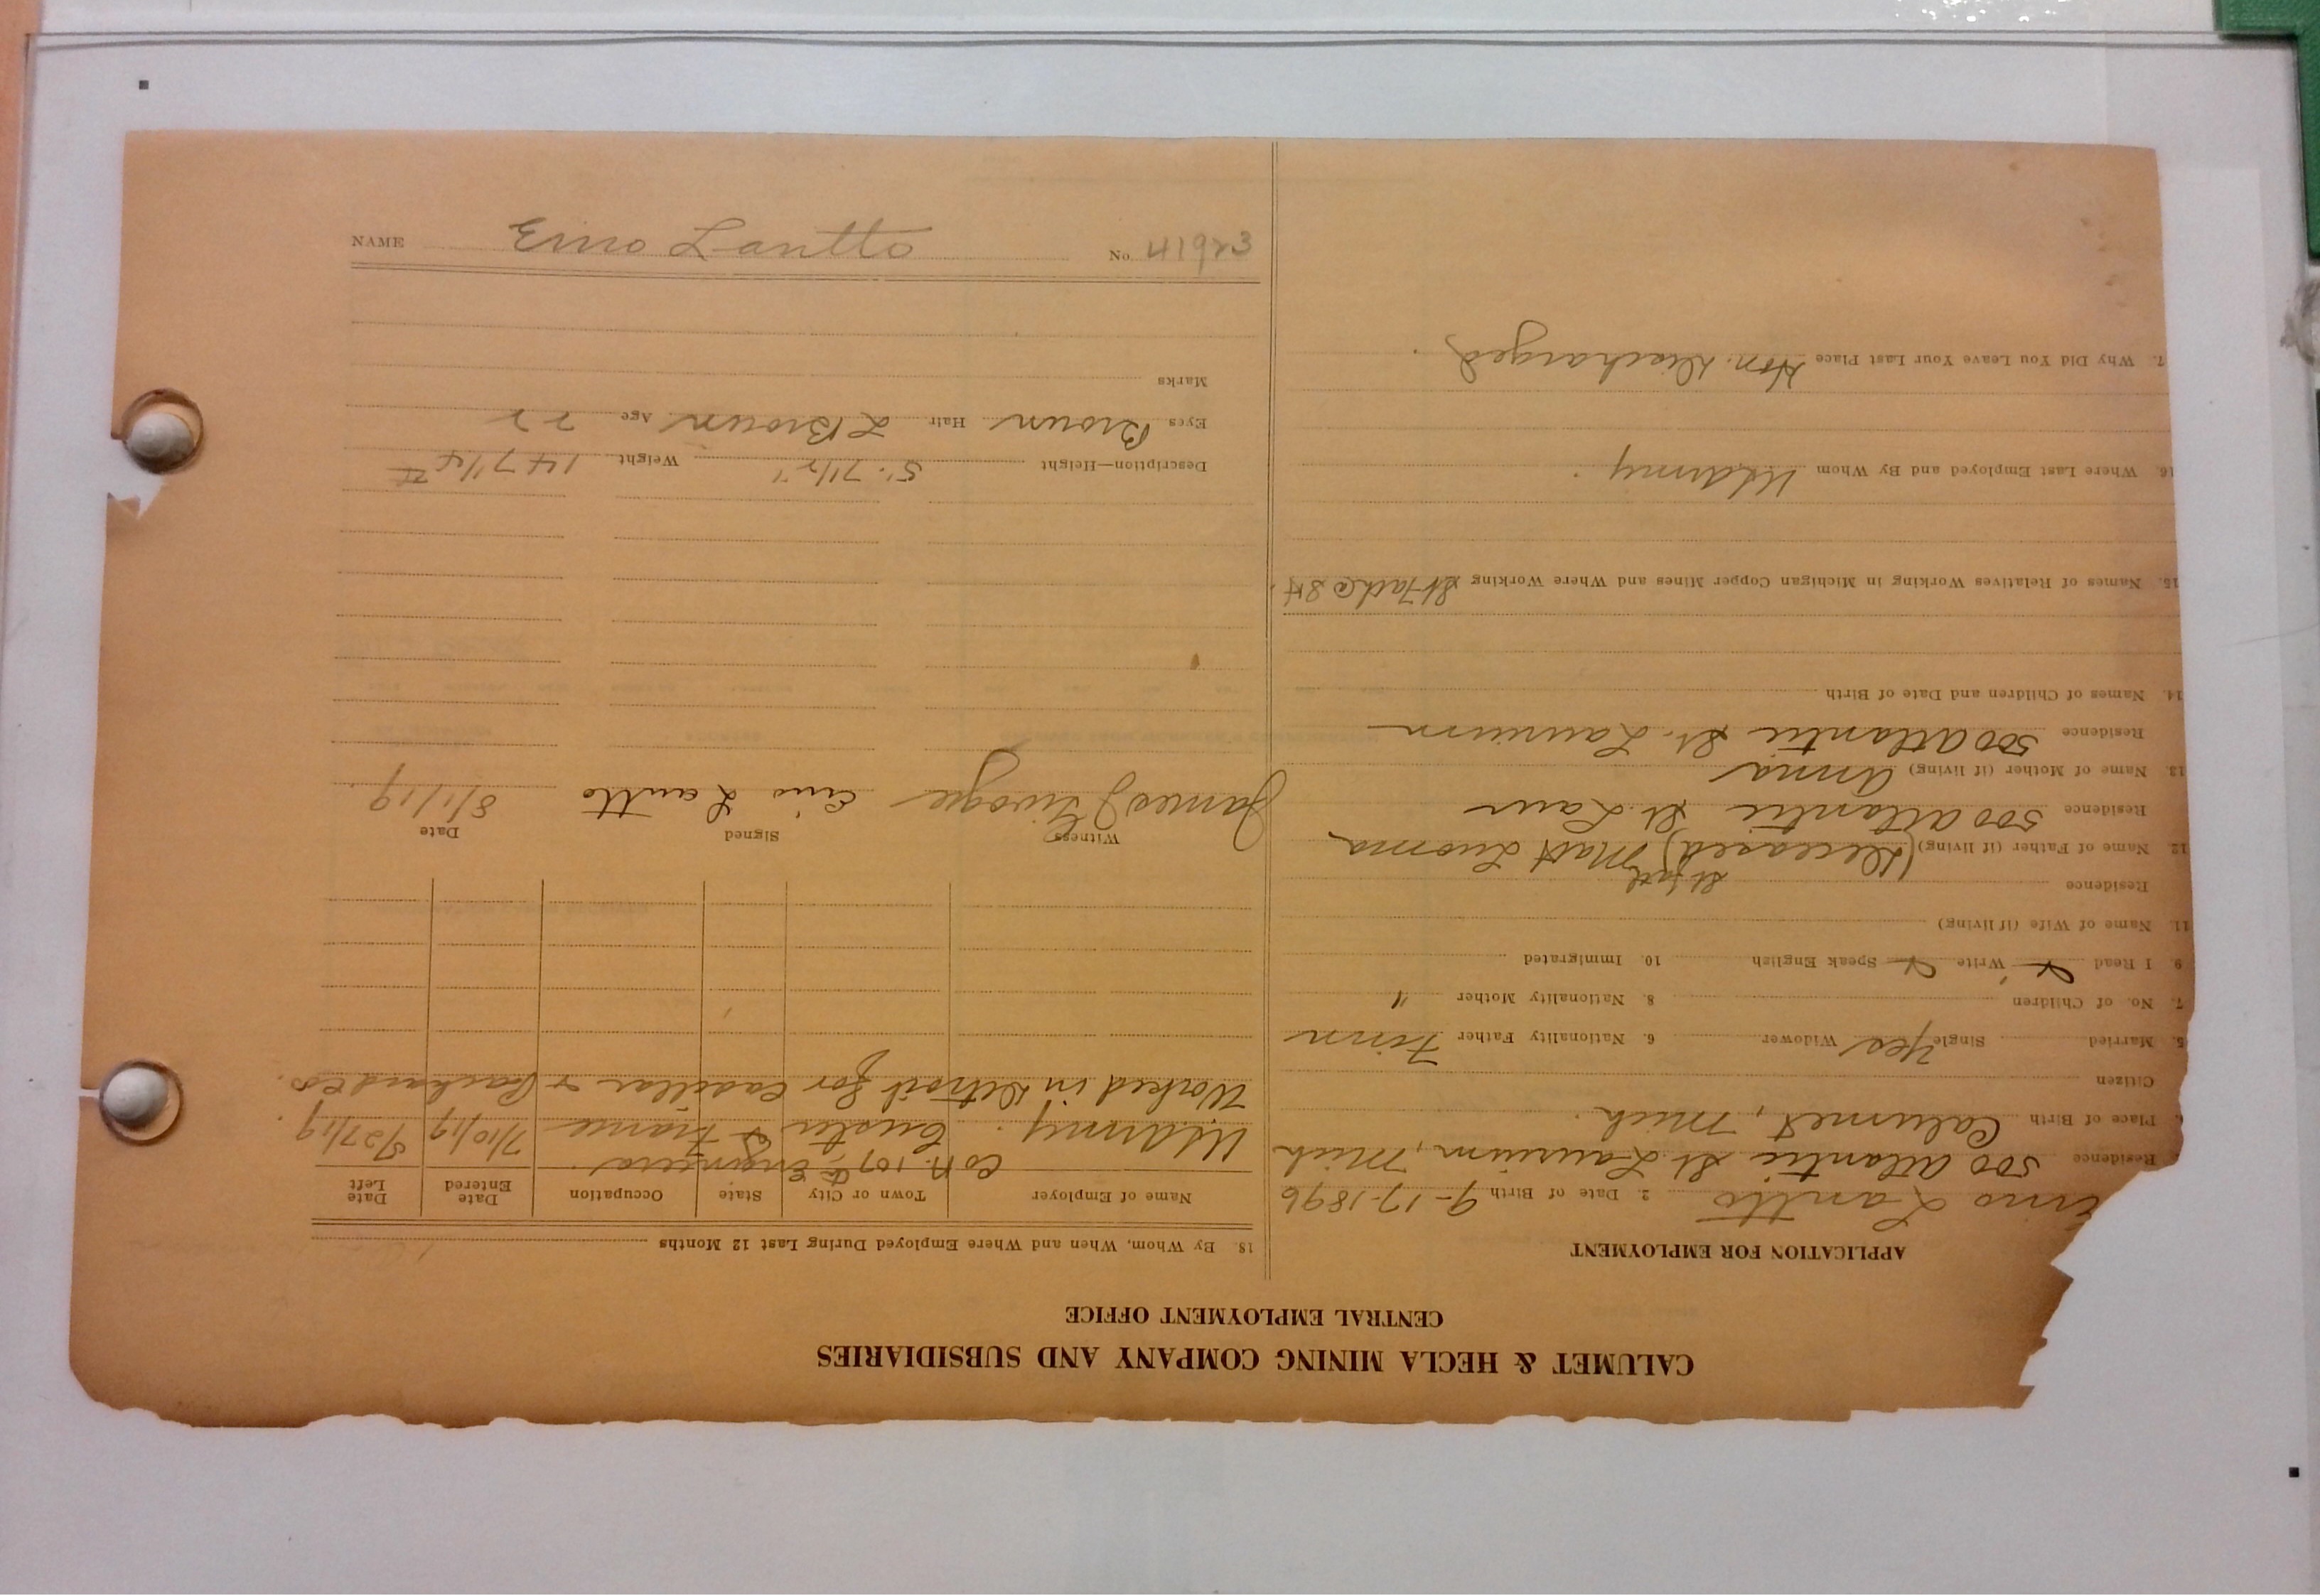 CALUMET & HECLA MINING COMPANY AND SUBSIDIARIES
CENTRAL EMPLOYMENT OFFICE
APPLICATION FOR EMPLOYMENT
Eino Lantto 2. Date of Birth 9-17-1896
Residence 500 Atlantic St Laurium, Mich
Place of Birth Calumet, Mich.
Citizen
5. Married Single Yes Widower 6. Nationality Father Finn
7. No. of Children 8. Nationality Mother "
9. I Read Write Speak English 10. Immigrated
11. Name of Wife (if living)
Residence
St fath
12. Name of Father (if living) (Deceased) Matt Luoma
Residence 500 Atlantic St. Laur
13. Name of Mother (if living) Anna
Residence 500 Atlantic St. Laurium
14. Names of Children and Date of Birth
15. Names of Relatives Working in Michigan Copper Mines and Where Working St Fath @
16. Where Last Employed and By Whom USArmy.
7. Why Did You Leave Your Last Place Hon. Discharged.
18. By Whom, When and Where Employed During Last 12 Months
Name of Employer Town or City State Occupation Date Entered Date Left
Co A. 107th Engineers.
USArmy. Custer & France 7/10/17 5/27/19.
Worked in Detroit for Cadillac &
Witness Signed Date
James Eino Lantto 8/1/19
Description—Height 5'. 7 1/2" Weight 147 1/4 #
Eyes Brown Hair L Brown Age 22
Marks
NAME Eino Lantto No. 41923